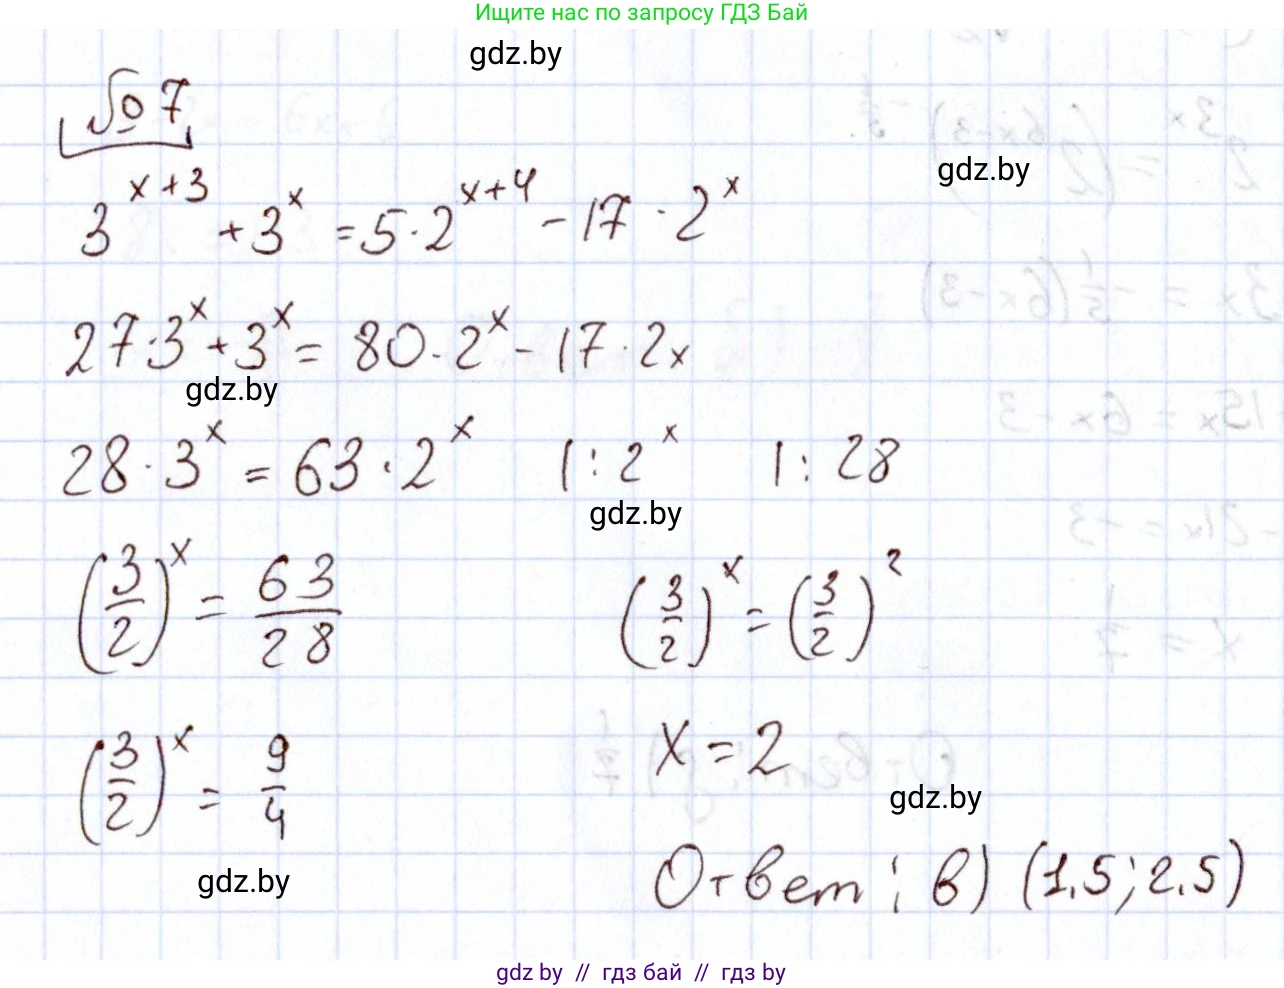 Ищите нас по запросу ГДЗ Бай
gdz.by
№ 7
gdz.by
3^(x+3) + 3^x = 5·2^(x+4) − 17·2^x
27·3^x + 3^x = 80·2^x − 17·2x
gdz.by
28·3^x = 63·2^x |: 2^x |: 28
gdz.by
(3/2)^x = 63/28 (3/2)^x = (3/2)^2
(3/2)^x = 9/4 x = 2
gdz.by
gdz.by
Ответ: в) (1,5; 2,5)
gdz.by // гдз бай // гдз by